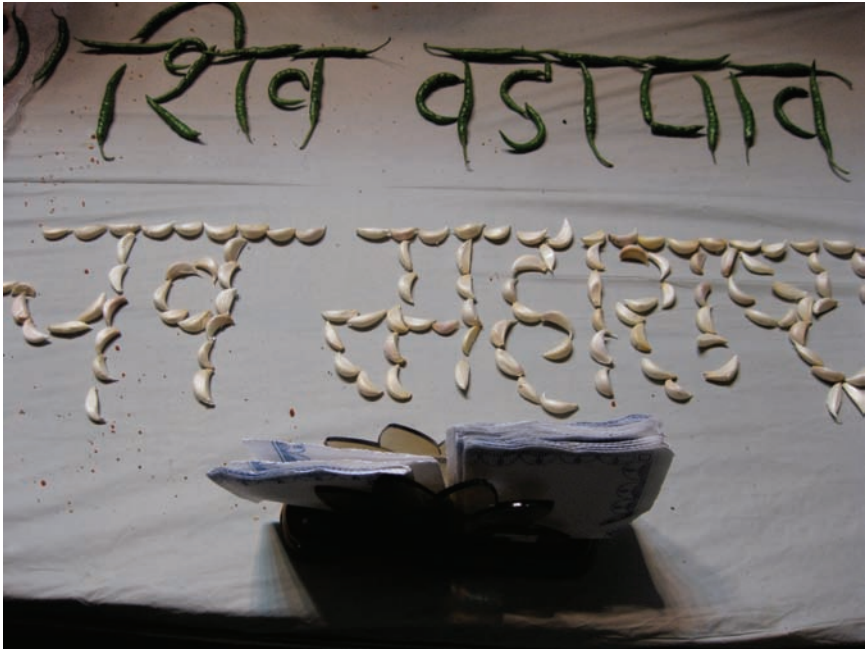 शिव वडा पाव
महाराष्ट्र